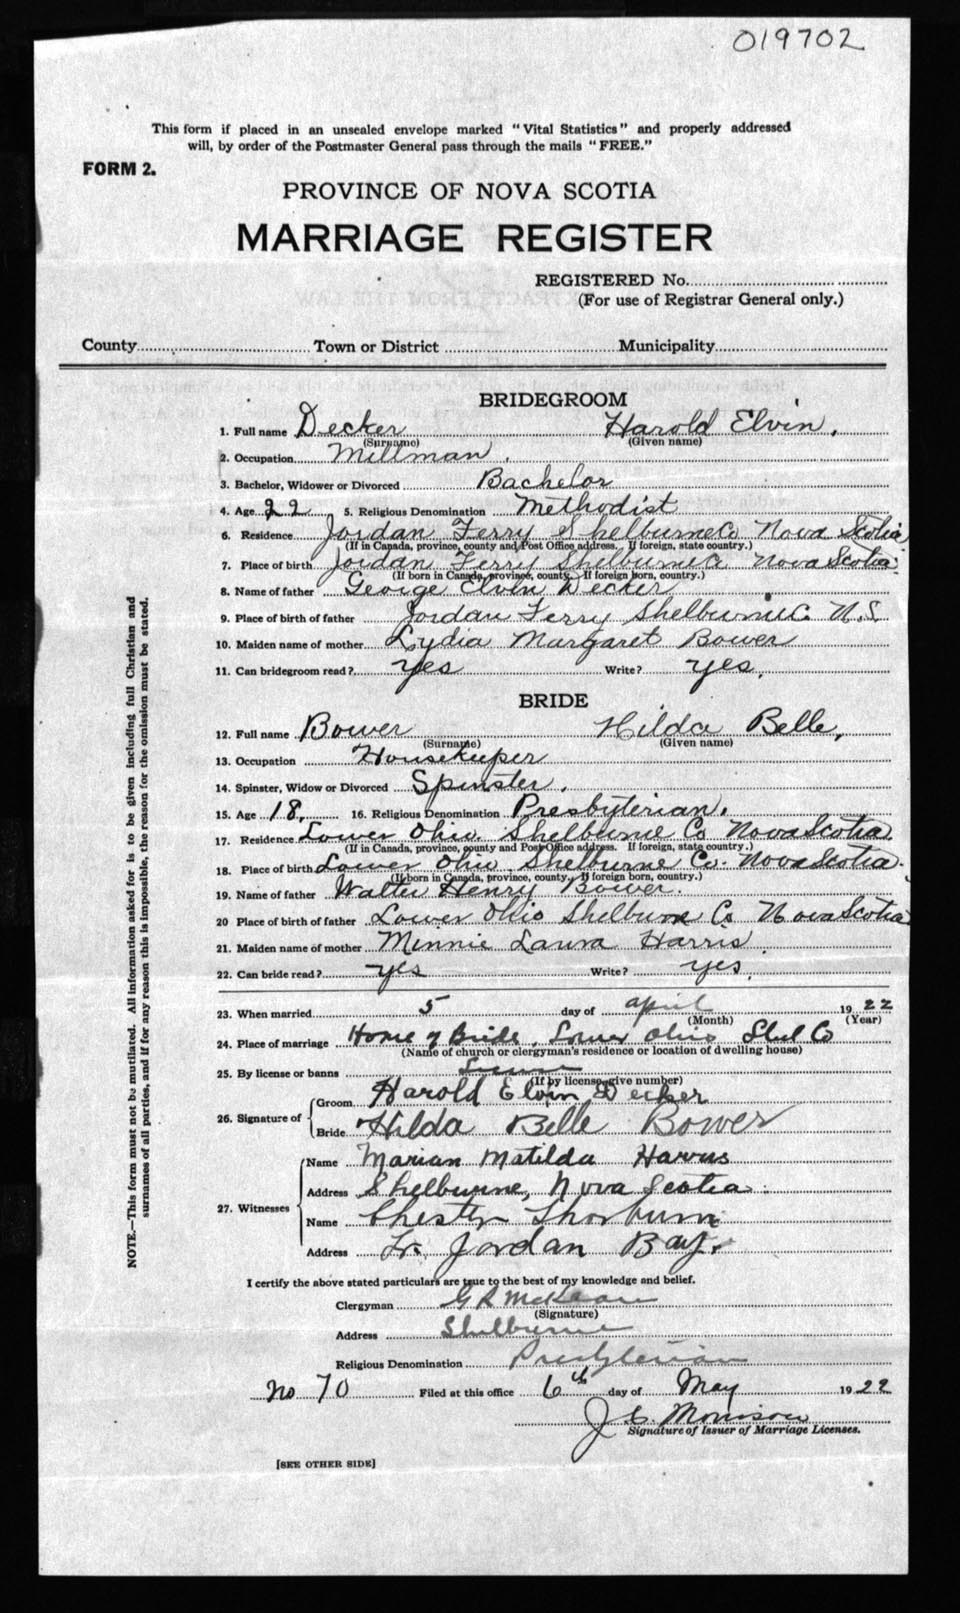 019702
This form if placed in an unsealed envelope marked "Vital Statistics" and properly addressed
will, by order of the Postmaster General pass through the mails "FREE."
FORM 2.
PROVINCE OF NOVA SCOTIA
MARRIAGE REGISTER
REGISTERED No.
(For use of Registrar General only.)
County Town or District Municipality
BRIDEGROOM
1. Full name Decker Harold Elvin.
(Surname) (Given name)
2. Occupation Millman.
3. Bachelor, Widower or Divorced Bachelor
4. Age 22 5. Religious Denomination Methodist
6. Residence Jordan Ferry Shelburne Co Nova Scotia
(If in Canada, province, county and Post Office address. If foreign, state country.)
7. Place of birth Jordan Ferry Shelburne Co Nova Scotia.
(If born in Canada, province, county. If foreign born, country.)
8. Name of father George Elvin Decker
9. Place of birth of father Jordan Ferry Shelburne Co. N.S.
10. Maiden name of mother Lydia Margaret Bower
11. Can bridegroom read? yes Write? yes.
BRIDE
12. Full name Bower Hilda Belle,
(Surname) (Given name)
13. Occupation Housekeeper
14. Spinster, Widow or Divorced Spinster.
15. Age 18. 16. Religious Denomination Presbyterian.
17. Residence Lower Ohio Shelburne Co Nova Scotia
(If in Canada, province, county and Post Office address. If foreign, state country.)
18. Place of birth Lower Ohio Shelburne Co. Nova Scotia.
(If born in Canada, province, county. If foreign born, country.)
19. Name of father Walter Henry Bower.
20 Place of birth of father Lower Ohio Shelburne Co Nova Scotia
21. Maiden name of mother Minnie Laura Harris.
22. Can bride read? yes Write? yes.
23. When married 5 day of april 1922
(Month) (Year)
24. Place of marriage Home of Bride. Lower Ohio Shel Co
(Name of church or clergyman's residence or location of dwelling house)
25. By license or banns License
(If by license, give number)
26. Signature of Groom Harold Elvin Decker
Bride Hilda Belle Bower
27. Witnesses Name Marian Matilda Harris
Address Shelburne, Nova Scotia.
Name Chester Thorburn
Address Lr. Jordan Bay.
I certify the above stated particulars are true to the best of my knowledge and belief.
Clergyman G R McKean
(Signature)
Address Shelburne
Religious Denomination Presbyterian
No 70 Filed at this office 6th day of May 1922
J. C. Morrison
Signature of Issuer of Marriage Licenses.
[SEE OTHER SIDE]
NOTE.—This form must not be mutilated. All information asked for is to be given including full Christian and
surnames of all parties, and if for any reason this is impossible, the reason for the omission must be stated.